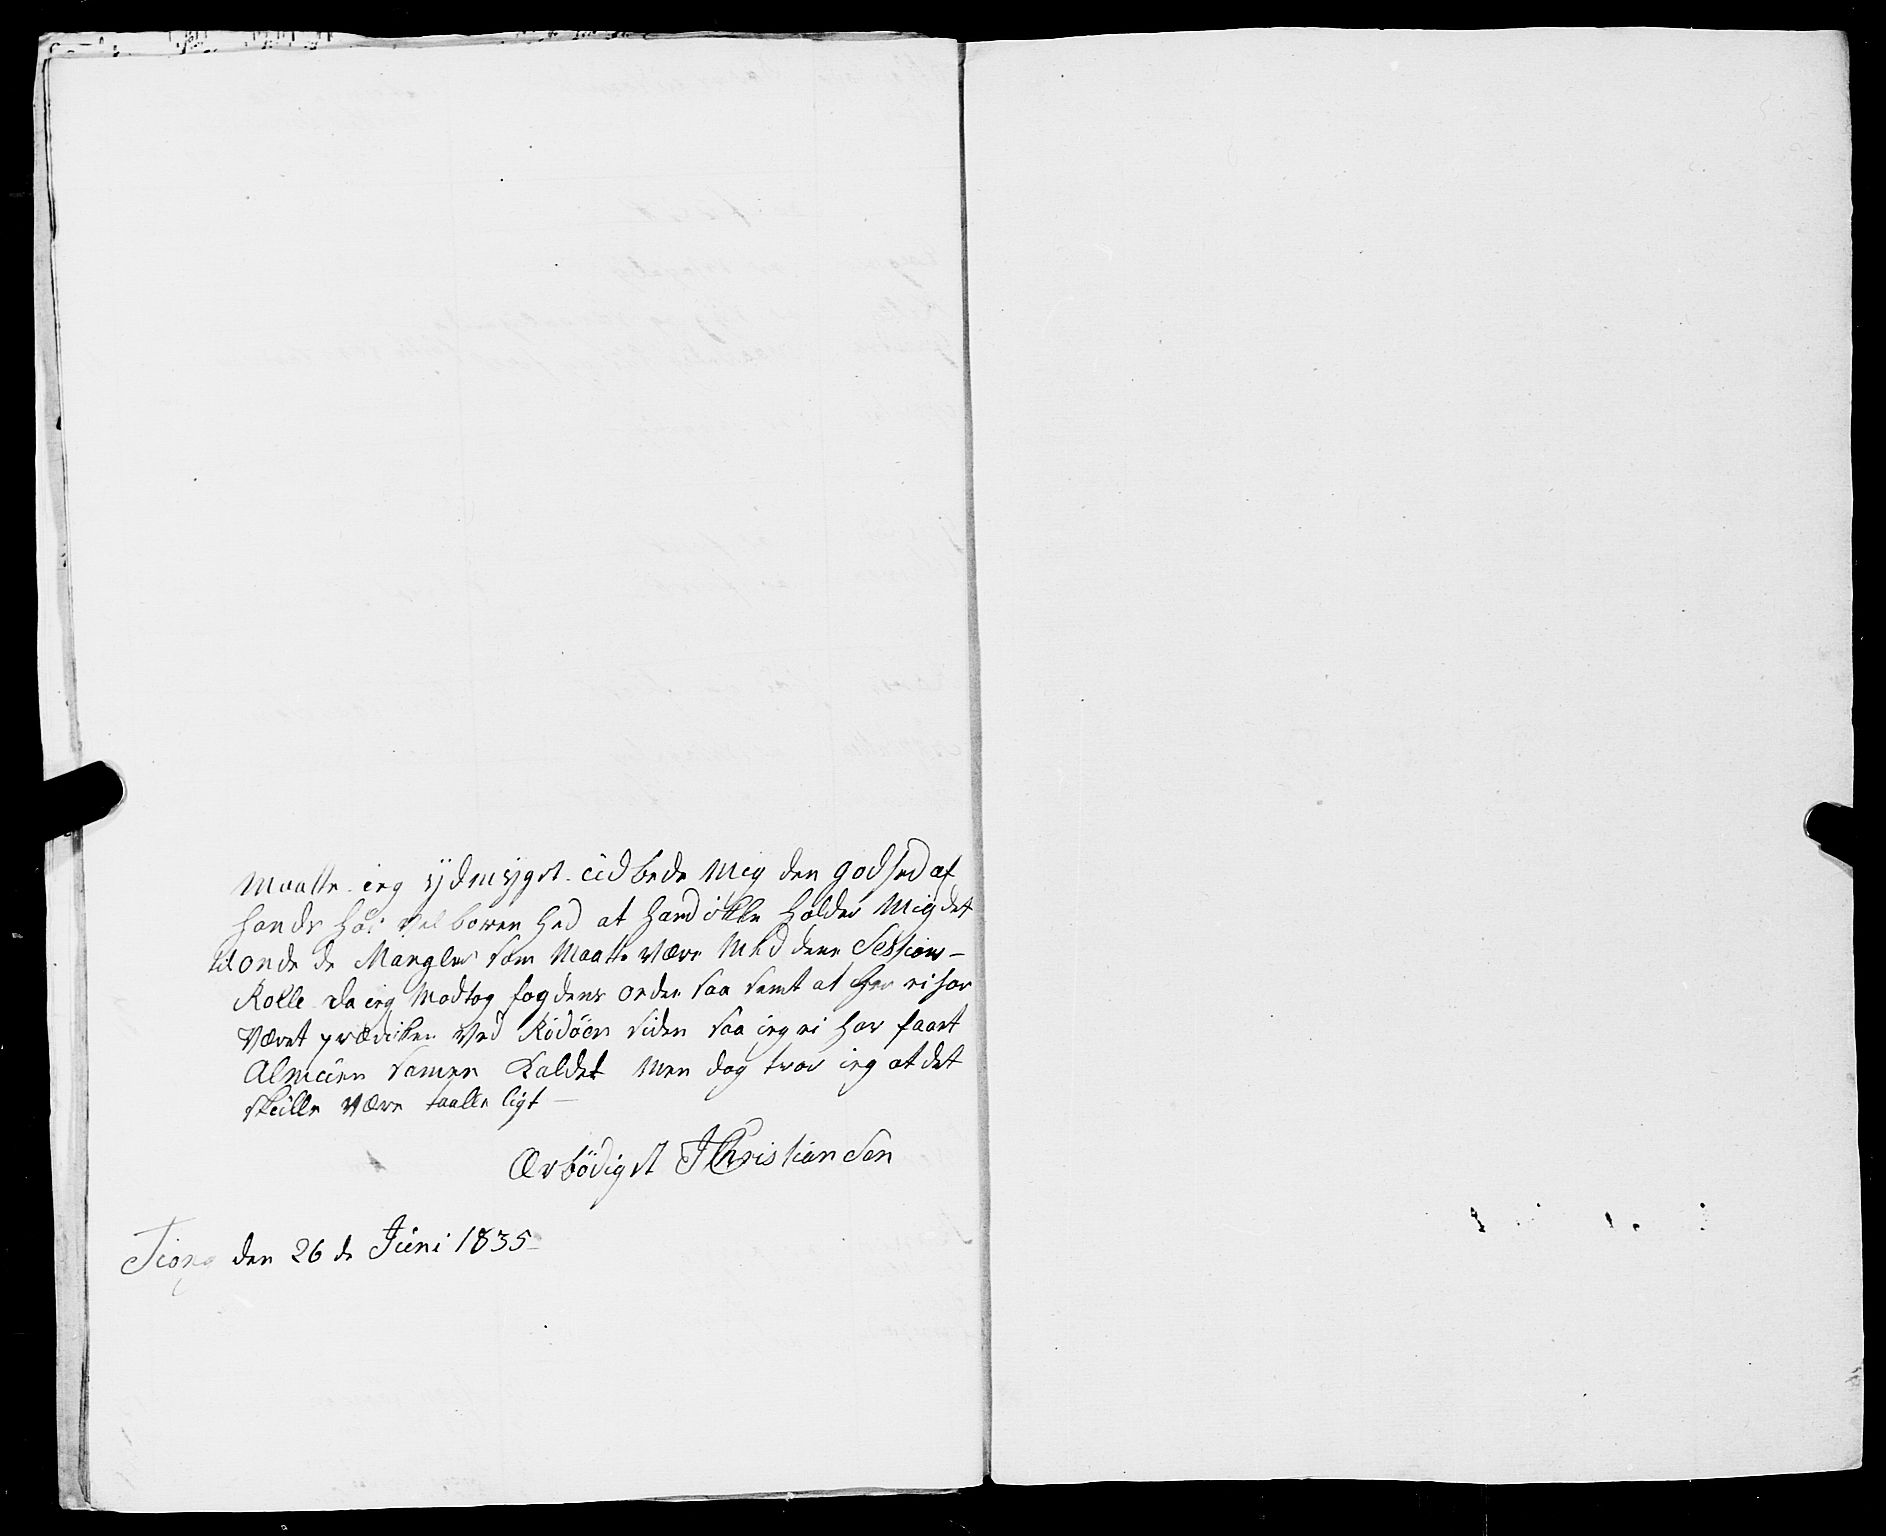 Maatte ieg ydmygst udbede Mig den godhed af
hands Høi Velboren hed at hand ikke holder Mig det
til onde de Mangler som Maatte være Med dene Sessions-
Rolle da ieg Modtog fogdens order saa semt at her ei har
Været prædiken Ved Rödöen siden saa ieg ei har faaet
Almuen samen Kaldet Men dog troer ieg at det
skulle Være taalle ligt —
Ærbödigst JChristiansen
Tiong den 26 de Juni 1835